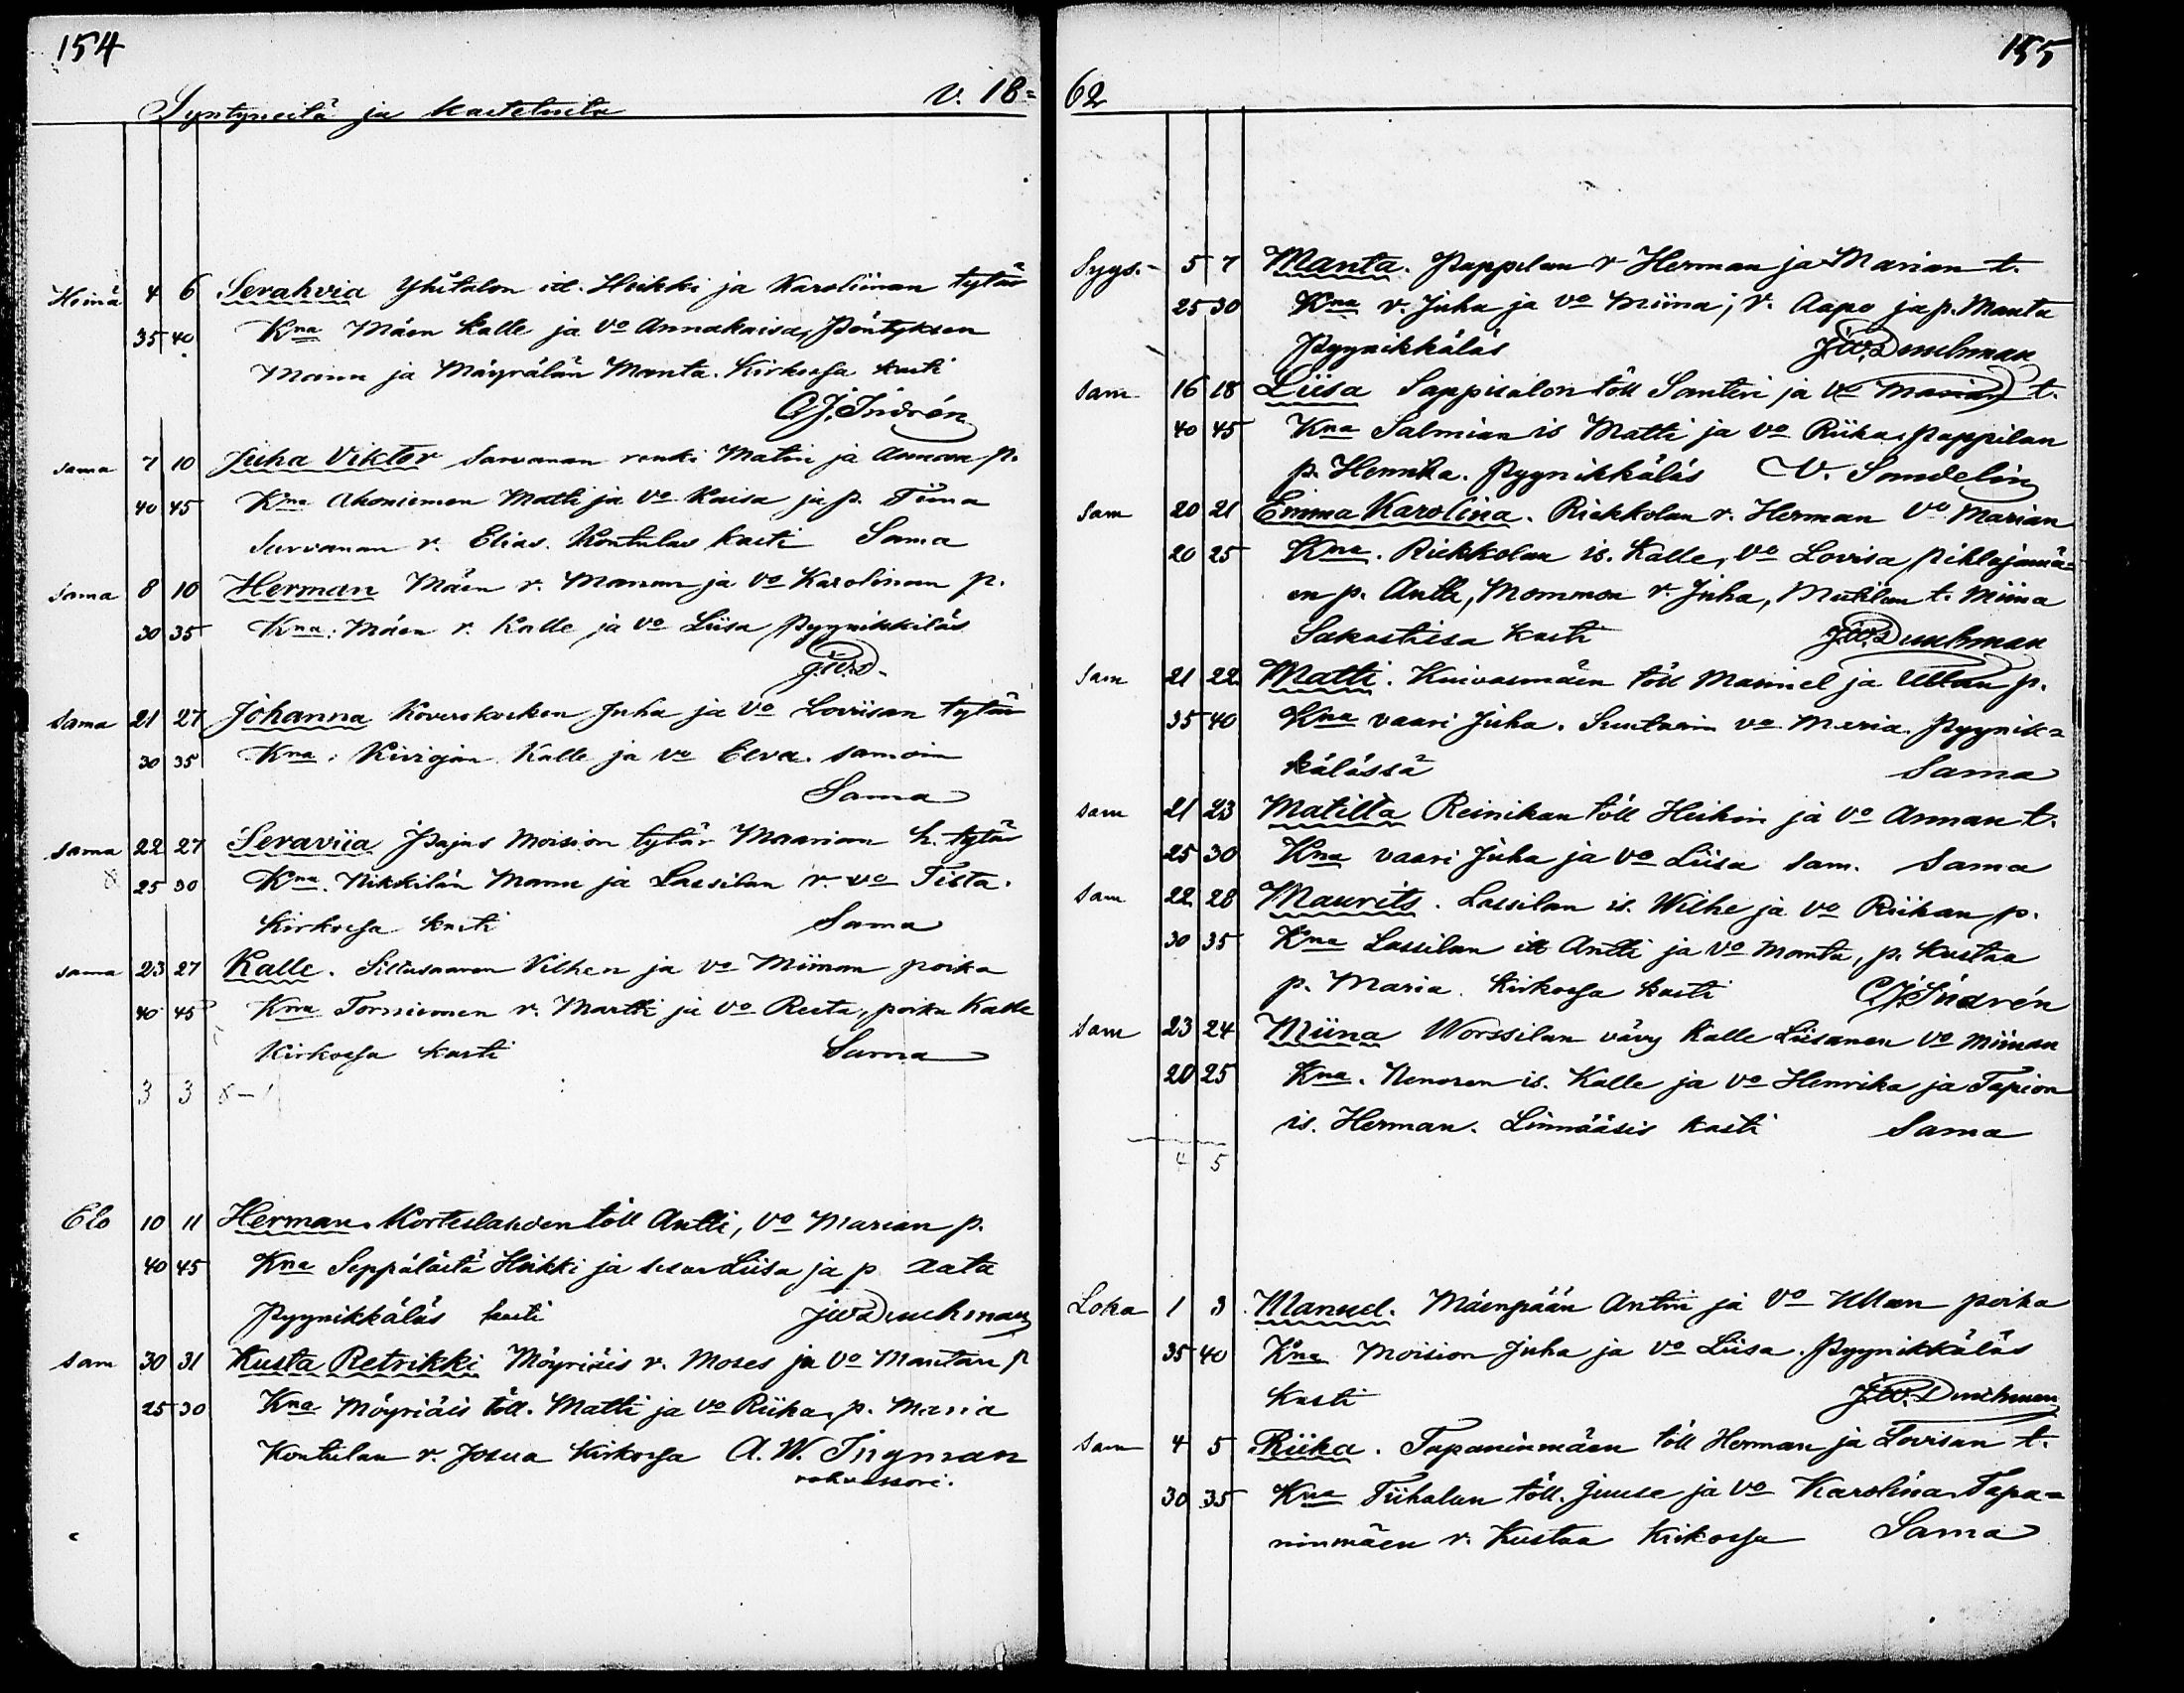 154
Syntyneitä ja kastetuita V. 18=
Heinä 4 6 Serahvia Yhitalon itl. Heikki ja Karoliinan tytär
35 40 Kna Mäen Kalle ja Vo Annakaisa, Pöntyksen
Mannu ja Mäyrälän Manta. Kirkossa kasti
C.J. Indrén
sama 7 10 Juha Viktor Sarvanan renki Matin ja Annan p.
40 45 Kna Ahoniemen Matti ja Vo Kaisa ja p. Tiina
Survanan r. Elias. Kontulas kasti Sama
sama 8 10 Herman Mäen r. Manun ja Vo Karolinan p.
30 35 Kna: Mäen r. Kalle ja Vo Liisa Pyynikkiläs
J.W.D.
sama 21 27 Johanna Koverokosken Juha ja Vo Loviisan tytär
30 35 Kna: Kiviojan Kalle ja Vo Eeva. samoin
Sama
sama 22 27 Seraviia Pajus Moision tytär Maarian h. tytär
25 30 Kna. Nikkilän Mannu ja Lassilan r. vo Tista.
Kirkossa kasti Sama
sama 23 27 Kalle. Siltasaaren Vilhen ja Vo Miinan poika
40 45 Kna Torniemen r. Martti ja Vo Reeta, poika Kalle
Kirkossa kasti Sama
3 3 8-1
Elo 10 11 Herman. Korteslahden töll Antti, Vo Marian p.
40 45 Kna Seppälästä Heikki ja sisar Liisa ja p Aata
Pyynikkäläs kasti J.W. Duchman
sam 30 31 Kusta Retrikki Möyriäis r. Moses ja Vo Mantan p
25 30 Kna Möyriäis töll. Matti ja Vo Riika, p. Maria
Kontulan r. Josua Kirkossa A. W. Ingman
rohvessori.
155
62
Syys.- 5 7 Manta. Pappilan r Herman ja Marian t.
25 30 Kna r. Juha ja Vo Miina; r. Aapo ja p. Manta
Pyynikkäläs J.W. Duchman
sam 16 18 Liisa Sappisalon töll Santeri ja Vo Marian t.
40 45 Kna Salmian is Matti ja Vo Riika, pappilan
p. Hennika. Pyynikkäläs V. Sandelin
sam 20 21 Emma Karolina. Riekkolan r. Herman Vo Marian
20 25 Kna. Riekkolan is. Kalle, Vo Lovisa Pihlajamä=
en p. Antti, Mommon r. Juha, Mattilan t. Miina
Sakastissa kasti J.W. Duchman
sam 21 22 Matti. Kuivasmäen töll Manuel ja Ullan p.
35 40 Kna vaari Juha. Suutarin vo Maria. Pyynik=
kälässä Sama
sam 21 23 Matilta Reinikan töll Heikin ja Vo Annan t.
25 30 Kna vaari Juha ja Vo Liisa sam. Sama
sam 22 28 Maurits. Lassilan is. Wilhe ja Vo Riikan p.
30 35 Kna Lassilan itl Antti ja Vo Manta, p. Kustaa
p. Maria. Kirkossa kasti C.J. Indrén
sam 23 24 Miina Worssilan vävy Kalle Liisanen Vo Miinan
20 25 Kna. Nenosen is. Kalle ja Vo Henrika ja Tapion
is. Herman. Linnääsis kasti Sama
4 5
Loka 1 3 Manuel. Mäenpään Antin ja Vo Ullan poika
35 40 Kna Moision Juha ja Vo Liisa. Pyynikkäläs
kasti J.W. Duchman
sam 4 5 Riika. Tapaninmäen töll Herman ja Lovisan t.
30 35 Kna Tiihalan töll. Juuse ja Vo Karolina. Tapa=
ninmäen r. Kustaa Kirkossa Sama